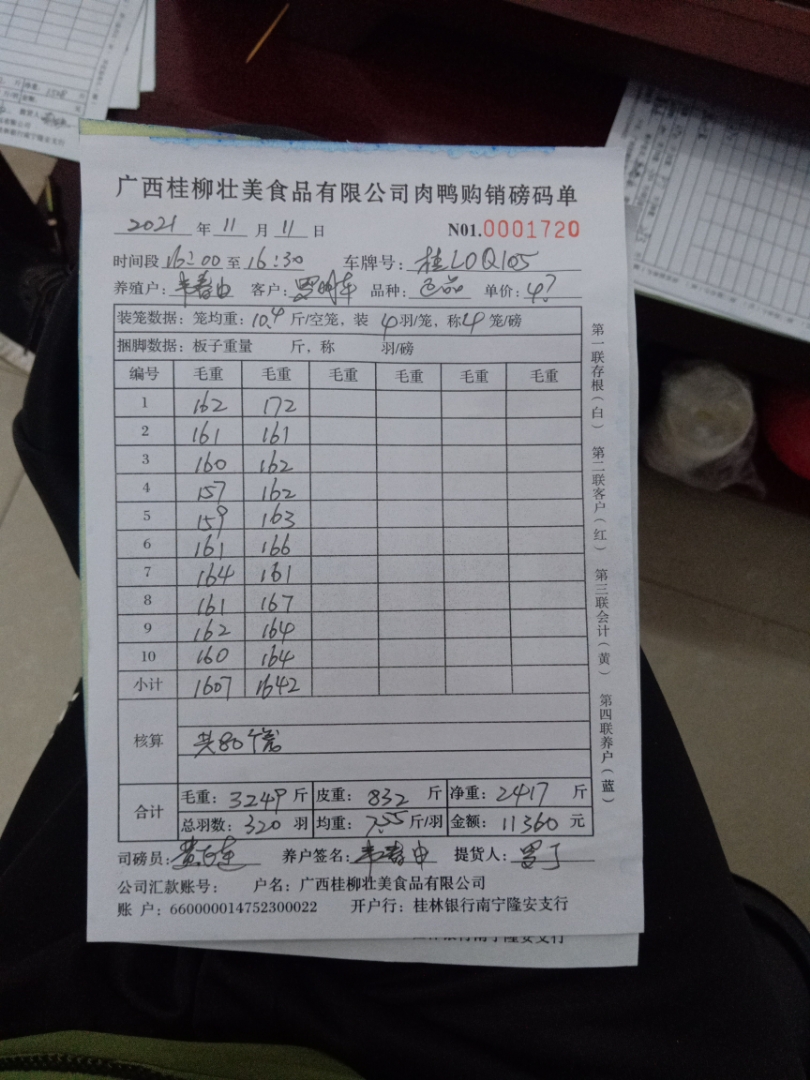 广西桂柳壮美食品有限公司肉鸭购销磅码单
2021 年 11 月 11 日 N01.0001720
时间段 16:00 至 16:30 车牌号: 桂LOQ105
养殖户: 客户: 品种: 单价: 4.7
装笼数据: 笼均重: 10.4 斤/空笼, 装 4 羽/笼, 称 4 笼/磅
捆脚数据: 板子重量 斤, 称 羽/磅
编号 毛重 毛重 毛重 毛重 毛重 毛重
1 162 172
2 161 161
3 160 162
4 157 162
5 159 163
6 161 166
7 164 161
8 161 167
9 162 164
10 160 164
小计 1607 1642
核算 共80个笼
合计 毛重: 3249 斤 皮重: 832 斤 净重: 2417 斤
总羽数: 320 羽 均重: 7.55 斤/羽 金额: 11360 元
司磅员: 养户签名: 提货人:
公司汇款账号: 户名: 广西桂柳壮美食品有限公司
账 户: 660000014752300022 开户行: 桂林银行南宁隆安支行
第一联存根(白) 第二联客户(红) 第三联会计(黄) 第四联养户(蓝)